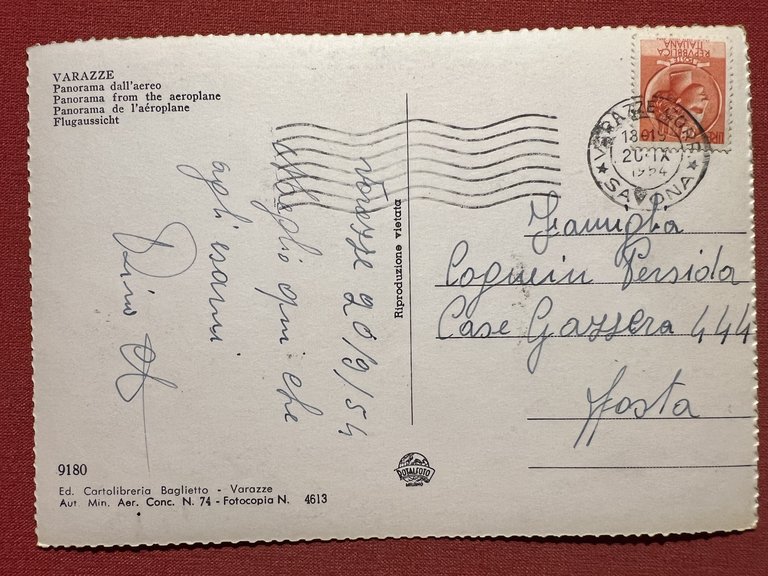 VARAZZE
Panorama dall'aereo
Panorama from the aeroplane
Panorama de l'aéroplane
Flugaussicht
REPVBBLICA
ITALIANA
VARAZZE CORR.
18-19
20·IX
1954
SAVONA
Varazze 20/9/54
Meglio qui che
agli esami
Dino
Riproduzione vietata
Famiglia
Coquein Persida
Case Gazzera 444
Aosta
9180
Ed. Cartolibreria Baglietto - Varazze
Aut. Min. Aer. Conc. N. 74 - Fotocopia N. 4613
ROTALFOTO
MILANO